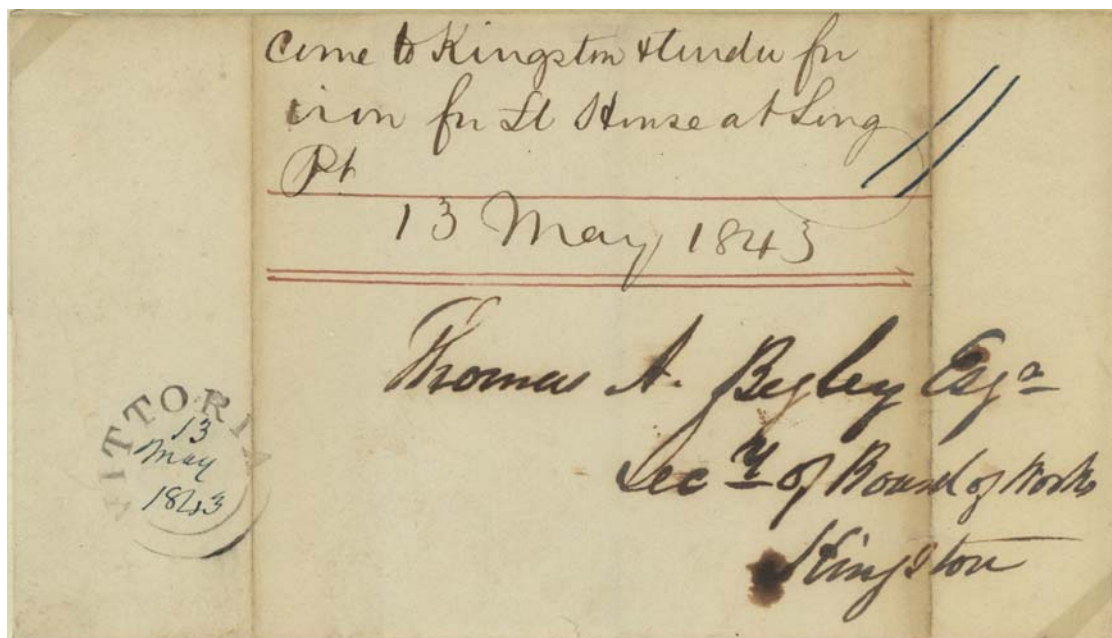 Come to Kingston & tender for
iron for Lt House at Long
Pt
11
13 May 1843
Thomas A. Begley Esqr
Secy of Board of Works
Kingston
VITTORIA
13
May
1843